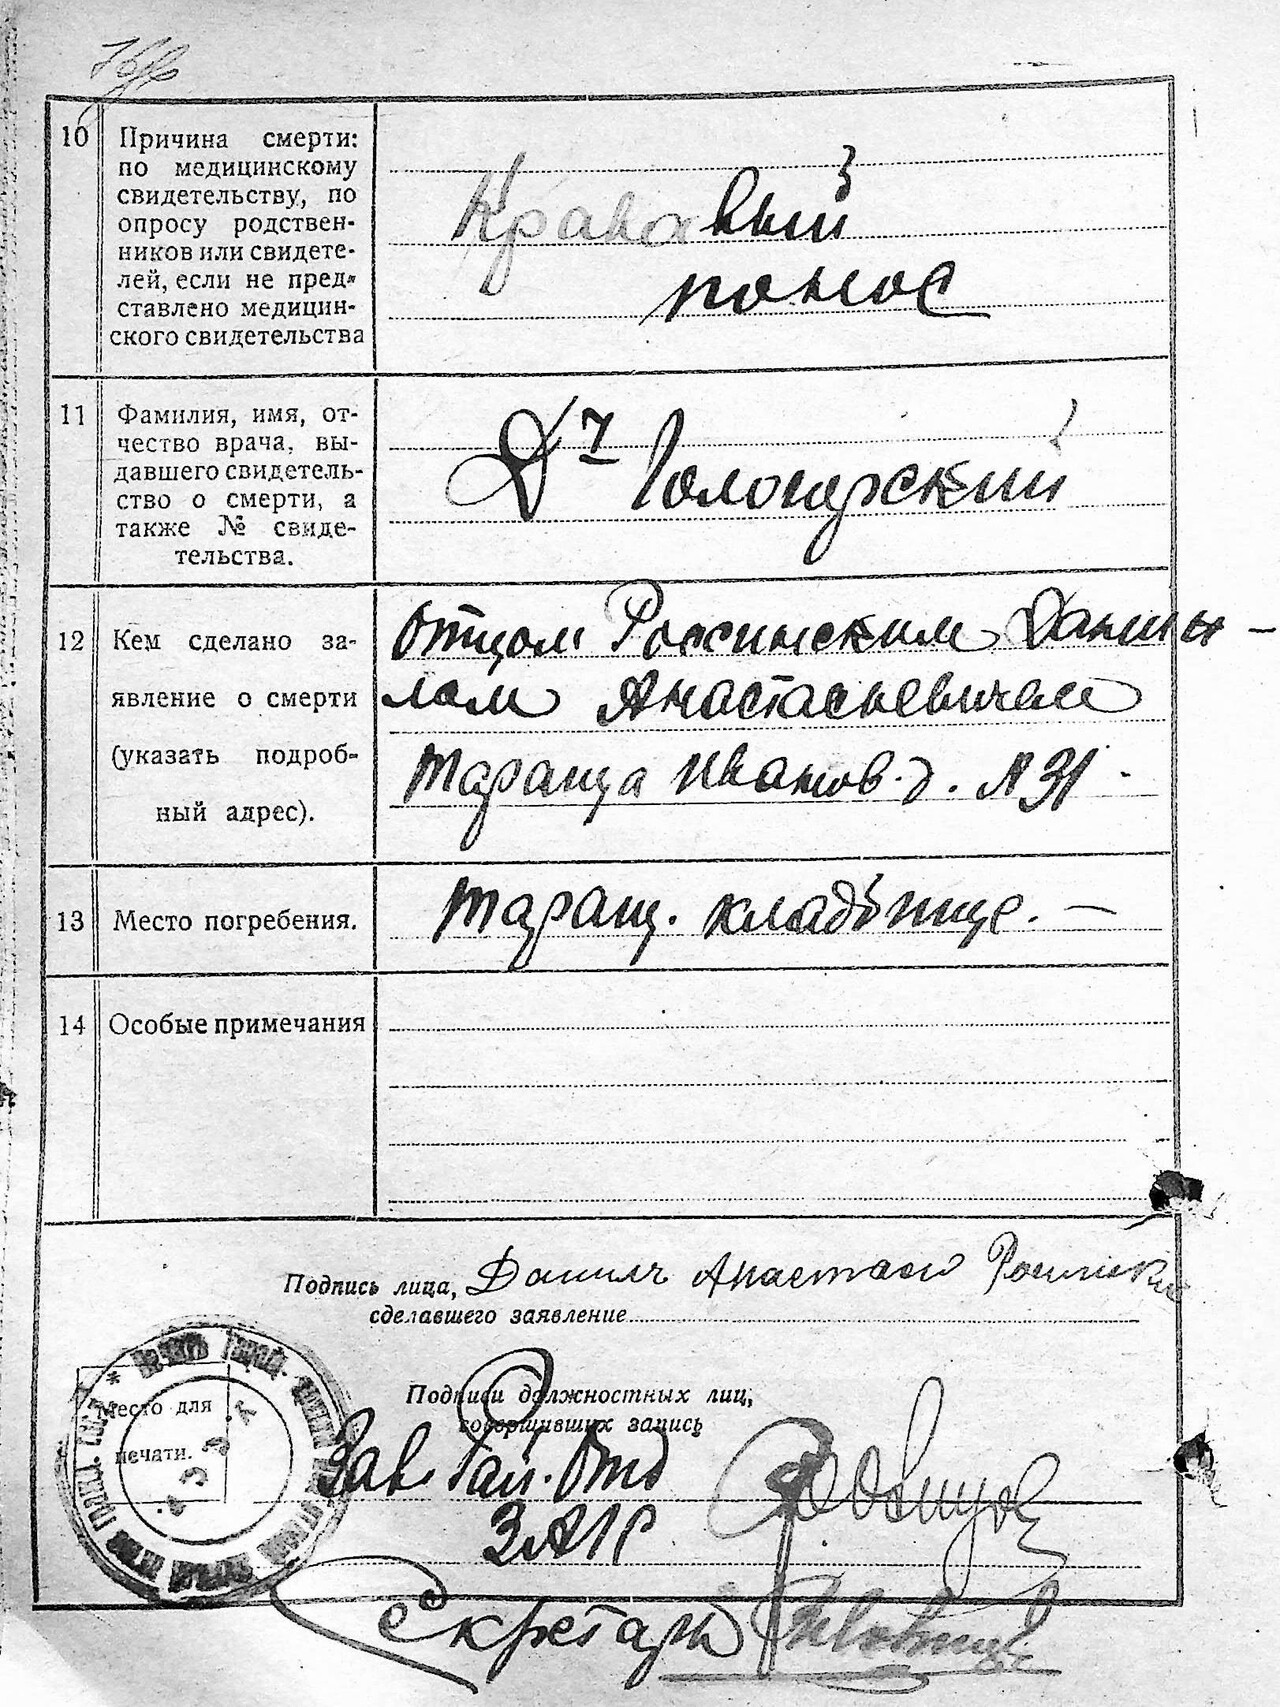 10
Причина смерти:
по медицинскому
свидетельству, по
опросу родствен-
ников или свидете-
лей, если не пред-
ставлено медицин-
ского свидетельства
Кравовый
понос
11
Фамилия, имя, от-
чество врача, вы-
давшего свидетель-
ство о смерти, а
также № свиде-
тельства.
Гологорский
12
Кем сделано за-
явление о смерти
(указать подроб-
ный адрес).
Отцом Россинским Дании-
лом Анастасьевичем
Тараща Иванов. д. № 31.
13
Место погребения.
Таращ. кладбище. —
14
Особые примечания
Подпись лица, Данилъ
сделавшего заявление
Подписи должностных лиц,
совершивших запись
Место для
печати.
Зав Рай. Отд
ЗАГС
Секретарь